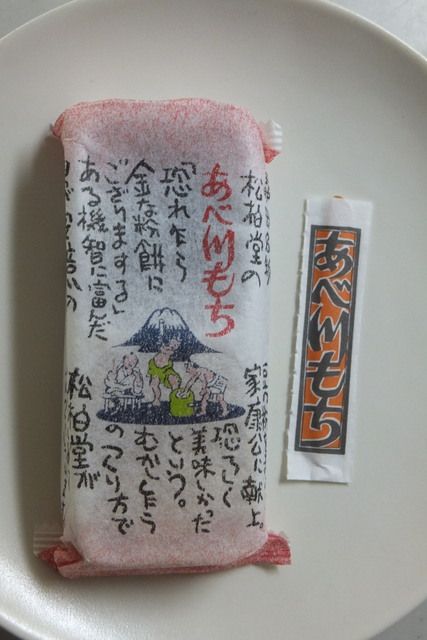 松柏堂の
あべ川もち
「恐れ乍ら
金な粉餅に
ござりまする」
ある機智に富んだ
家康公に献上。
恐ろしく
美味しかった
という。
むかし乍ら
のつくり方で
松柏堂が
あべ川もち